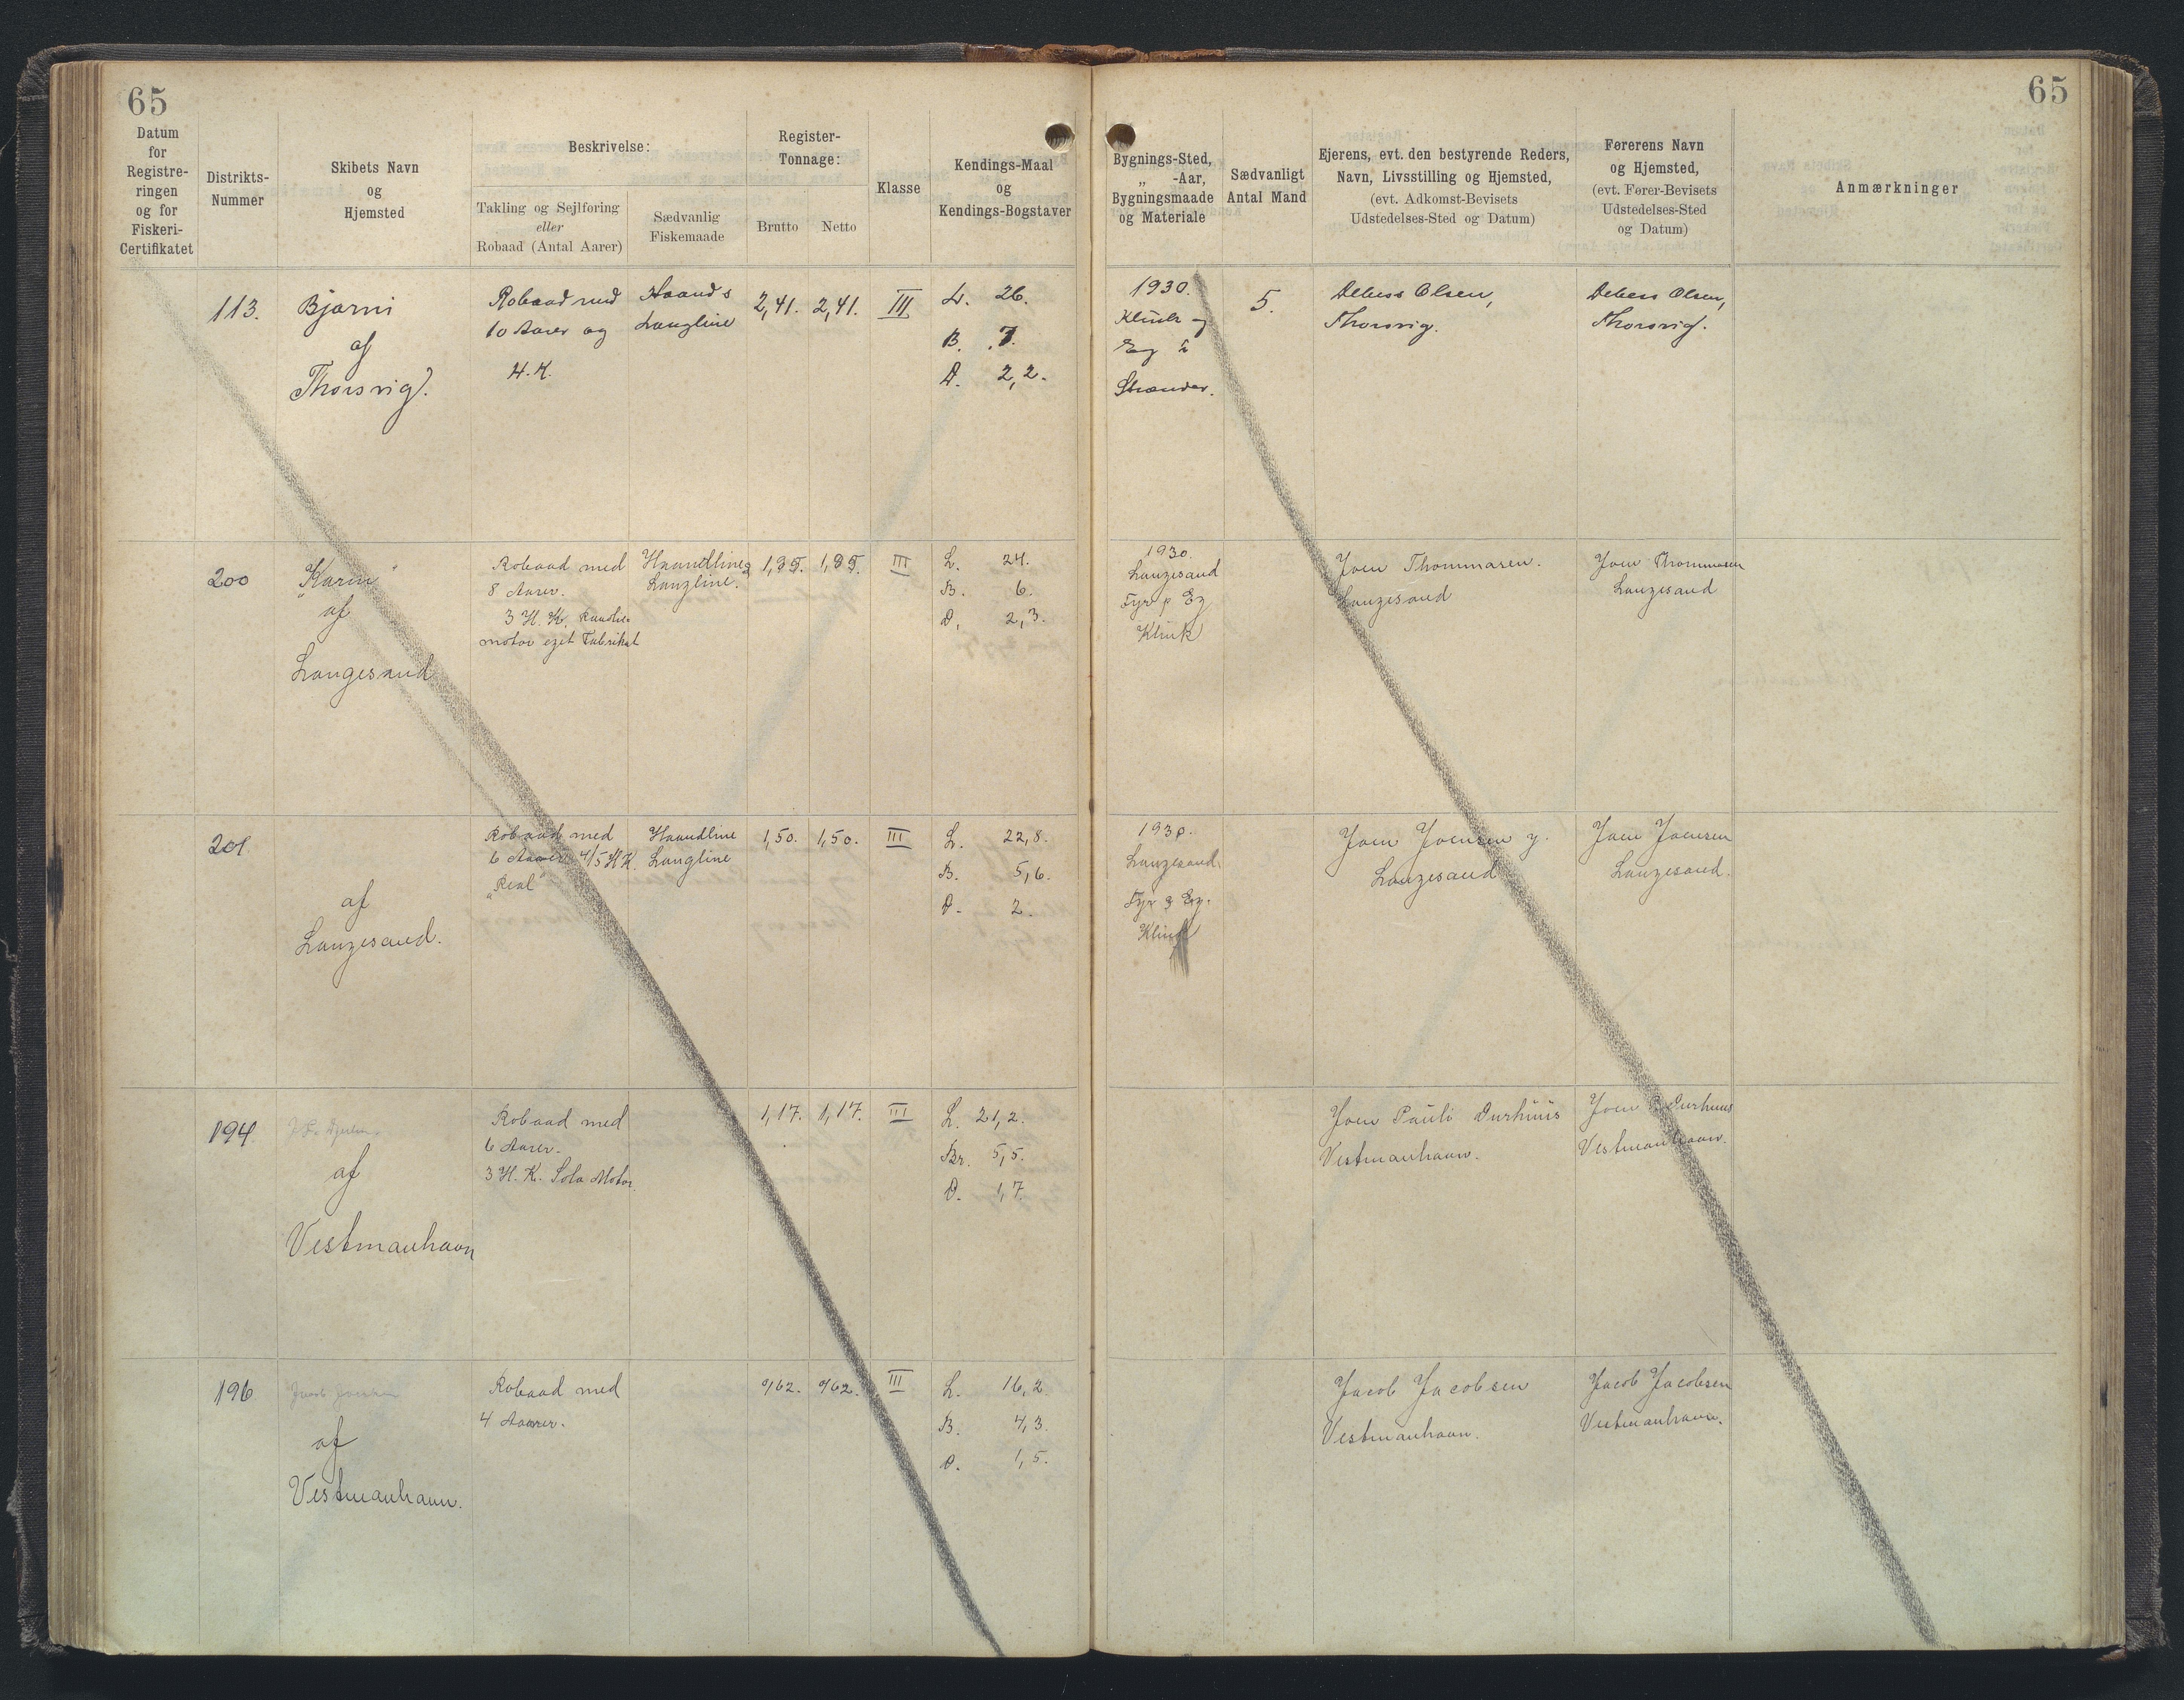 65
65
Datum
for
Registre-
ringen
og for
Fiskeri-
Certifikatet
Distrikts-
Nummer
Skibets Navn
og
Hjemsted
Beskrivelse:
Takling og Sejlføring
eller
Robaad (Antal Aarer)
Sædvanlig
Fiskemaade
Register-
Tonnage:
Brutto
Netto
Klasse
Kendings-Maal
og
Kendings-Bogstaver
Bygnings-Sted,
„ -Aar,
Bygningsmaade
og Materiale
Sædvanligt
Antal Mand
Ejerens, evt. den bestyrende Reders,
Navn, Livsstilling og Hjemsted,
(evt. Adkomst-Bevisets
Udstedelses-Sted og Datum)
Førerens Navn
og Hjemsted,
(evt. Fører-Bevisets
Udstedelses-Sted
og Datum)
Anmærkninger
113.
Bjarni
af
Thorsvig.
Robaad med
10 Aarer og
4.K.
Haand &
Langline
2,41.
2,41.
III
L. 26.
B. 7.
D. 2,2.
1930.
Klink og
Eg
Strender.
5.
Debess Olsen,
Thorsvig.
Debess Olsen,
Thorsvig.
200
"Karin"
af
Langesand
Robaad med
8 Aarer.
3 H. K.
motor eget Fabrikat
Haandline &
Langline.
1,95.
1,95.
III
L. 24.
B. 6.
D. 2,3.
1930.
Langesand
Fyr & Eg
Klink
Joen Thommasen.
Langesand
Joen Thommasen
Langesand
201.
af
Langesand.
Robaad med
6 Aarer 4/5 H K.
"Rex"
Haandline
Langline
1,50.
1,50.
III
L. 22,8.
B. 5,6.
D. 2.
1930.
Langesand
Fyr & Eg.
Klink
Joen Joensen y.
Langesand
Joen Joensen
Langesand.
194.
af
Vestmanhavn
Robaad med
6 Aarer.
3 H. K. Solo Motor.
1,17.
1,17.
III
L. 21,2.
Br. 5,5.
D. 1,7.
Joen Pauli Durhuus
Vestmanhavn.
Joen P. Durhuus
Vestmanhavn.
196
af
Vestmanhavn.
Robaad med
4 Aarer.
0,62.
0,62.
III
L. 16,2
B. 4,3
D. 1,5.
Jacob Jacobsen
Vestmanhavn.
Jacob Jacobsen
Vestmanhavn.